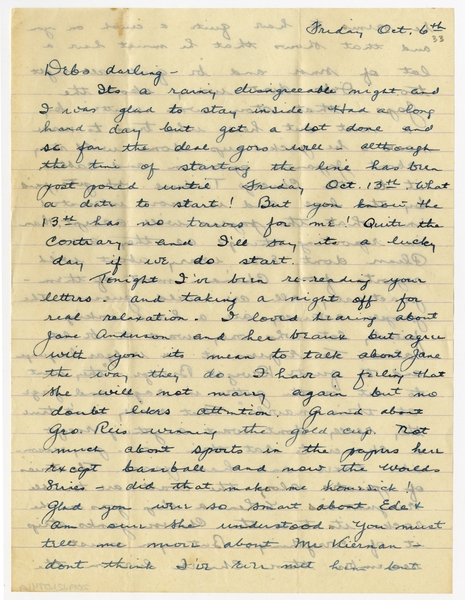 Friday Oct. 6th
33
Debo darling -
Its a rainy disagreeable night and
I was glad to stay inside. Had a long
hard day but got a lot done and
so far the deal goes well although
the time of starting the line has been
post poned until Friday Oct. 13th. What
a date to start! But you know the
13th has no terrors for me! Quite the
contrary - and I'll say its a lucky
day if we do start.
Tonight I've been re-reading your
letters - and taking a night off for
real relaxation. I loved hearing about
Jane Anderson and her beaux but agree
with you its mean to talk about Jane
the way they do. I have a feeling that
she will not marry again but no
doubt likes attention. Grand about
Geo. Reis winning the gold cup. Not
much about sports in the papers here
except baseball and now the Worlds
Series - did that make me homesick!
Glad you were so smart about Ede &
am sure she understood. You must
tell me more about Mr. Kiernan -
dont think I've ever met him but